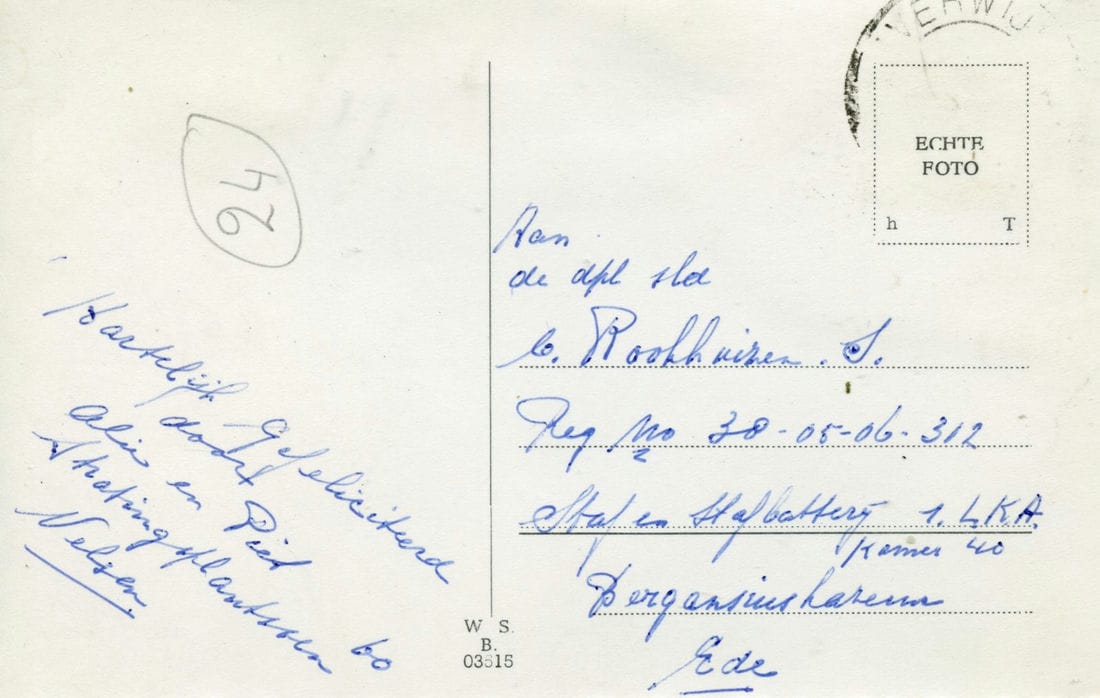 VERWIJ
ECHTE
FOTO
h T
24
Hartelijk Gefeliciteerd
door
Alie en Piet
60
Velsen
Aan
de dpl sld
C. Rookhuizen. S.
Reg No 38-05-06-312
Staf en Stafbatterij 1. L.K.A.
Kamer 40
Ede
W S.
B.
03515